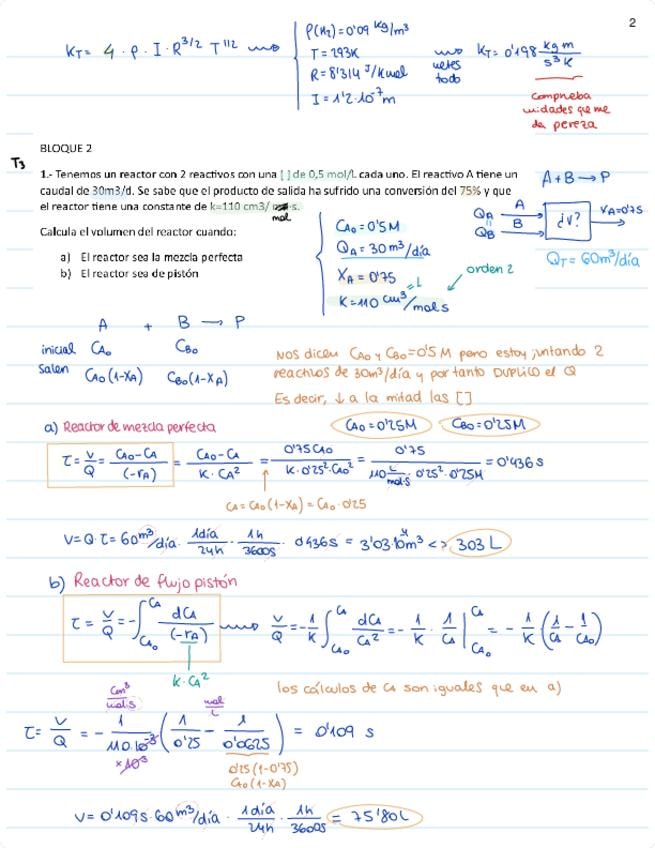 2
K_T = 4 · ρ · I · R^{3/2} T^{1/2}
ρ(H₂)=0'09 kg/m³
T = 293K
R= 8'314 J/Kmol
I = 1'2·10⁻⁷ m
metes todo
K_T= 0'198 kg m / s³ K
comprueba unidades que me da pereza
BLOQUE 2
T3
1.- Tenemos un reactor con 2 reactivos con una [ ] de 0,5 mol/L cada uno. El reactivo A tiene un
caudal de 30m3/d. Se sabe que el producto de salida ha sufrido una conversión del 75% y que
el reactor tiene una constante de k=110 cm3/ s.
mol
Calcula el volumen del reactor cuando:
a) El reactor sea la mezcla perfecta
b) El reactor sea de pistón
C_A0 = 0'5M
Q_A = 30 m³/día
X_A = 0'75
K = 110 cm³/mol s
= L
orden 2
A+B → P
Q_A A
Q_B B
¿V?
X_A=0'75
Q_T = 60m³/día
A + B → P
inicial C_A0 C_B0
Salen C_A0(1-X_A) C_B0(1-X_A)
NOS dicen C_A0 y C_B0=0'5 M pero estoy juntando 2
reactivos de 30m³/día y por tanto DUPLICO el Q
Es decir, ↓ a la mitad las [ ]
C_A0=0'25M C_B0=0'25M
a) Reactor de mezcla perfecta
τ = V/Q = (C_A0-C_A)/(-r_A) = (C_A0-C_A)/(K·C_A²) = 0'75 C_A0/(K·0'25²·C_A0²) = 0'75/(110 L/mol·s · 0'25²·0'25M) = 0'436 s
C_A = C_A0(1-X_A) = C_A0·0'25
V=Q·τ= 60 m³/día · 1día/24h · 1h/3600s · 0'436s = 3'03·10⁻⁴ m³ <> 303 L
b) Reactor de flujo pistón
τ = V/Q = -∫_{C_A0}^{C_A} dC_A/(-r_A) V/Q = -1/K ∫_{C_A0}^{C_A} dC_A/C_A² = -1/K · 1/C_A |_{C_A0}^{C_A} = -1/K (1/C_A - 1/C_A0)
K·C_A²
los cálculos de C_A son iguales que en a)
cm³/mol·s
mol/L
τ = V/Q = -1/(110·10⁻³) (1/0'25 - 1/0'0625) = 0'109 s
×10³
0'25(1-0'75)
C_A0(1-X_A)
V= 0'109s·60 m³/día · 1día/24h · 1h/3600s = 75'80L